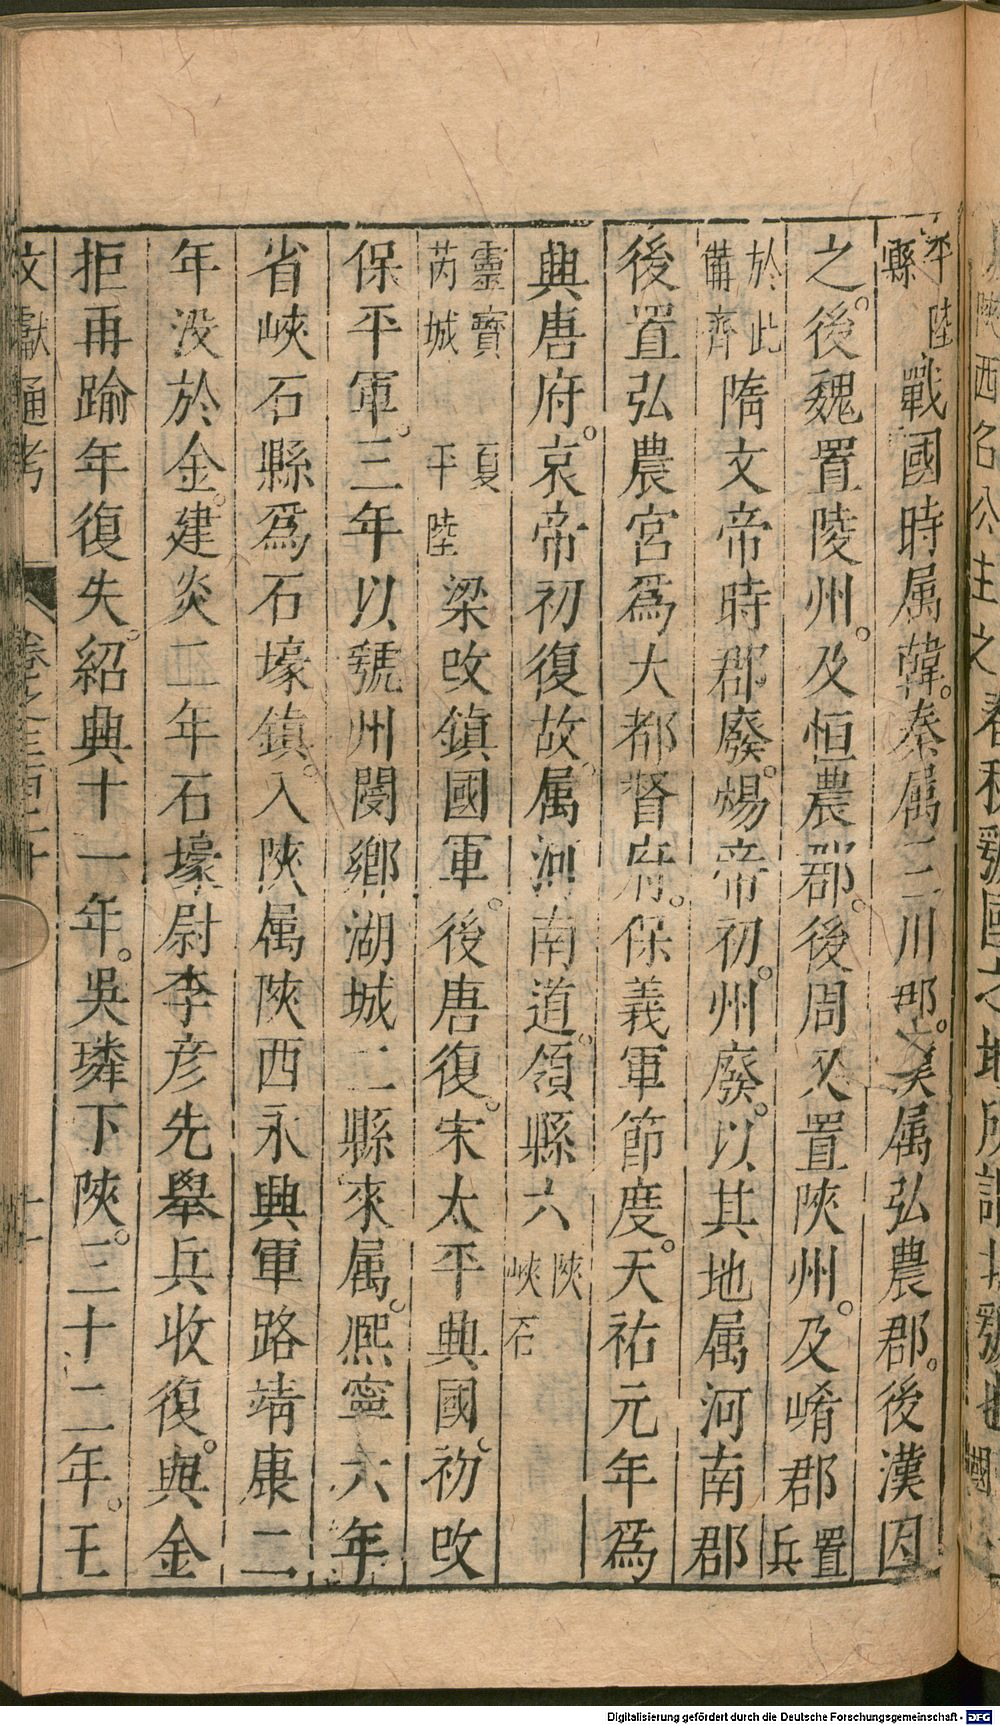 陝西名公主之春秋虢國之地所謂北虢也
平陸縣戰國時属韓。秦属三川郡。漢属弘農郡。後漢因
之。後魏置陵州。及恒農郡。後周又置陝州。及崤郡置兵
於此備齊隋文帝時郡廢。煬帝初。州廢。以其地属河南郡
後置弘農宮爲大都督府。保義軍節度。天祐元年爲
興唐府。哀帝初復故。属河南道。領縣六陝峽石
靈寶芮城夏平陸梁改鎮國軍。後唐復。宋太平興國初改
保平軍。三年以虢州閿鄉湖城二縣來属。熈寧六年
省峽石縣爲石壕鎮。入陝属陝西永興軍路靖康二
年没於金。建炎二年石壕尉李彦先舉兵收復。與金
拒再踰年復失。紹興十一年。吳璘下陝。三十二年。王
文獻通考
卷之三百二十
十一
Digitalisierung gefördert durch die Deutsche Forschungsgemeinschaft - DFG